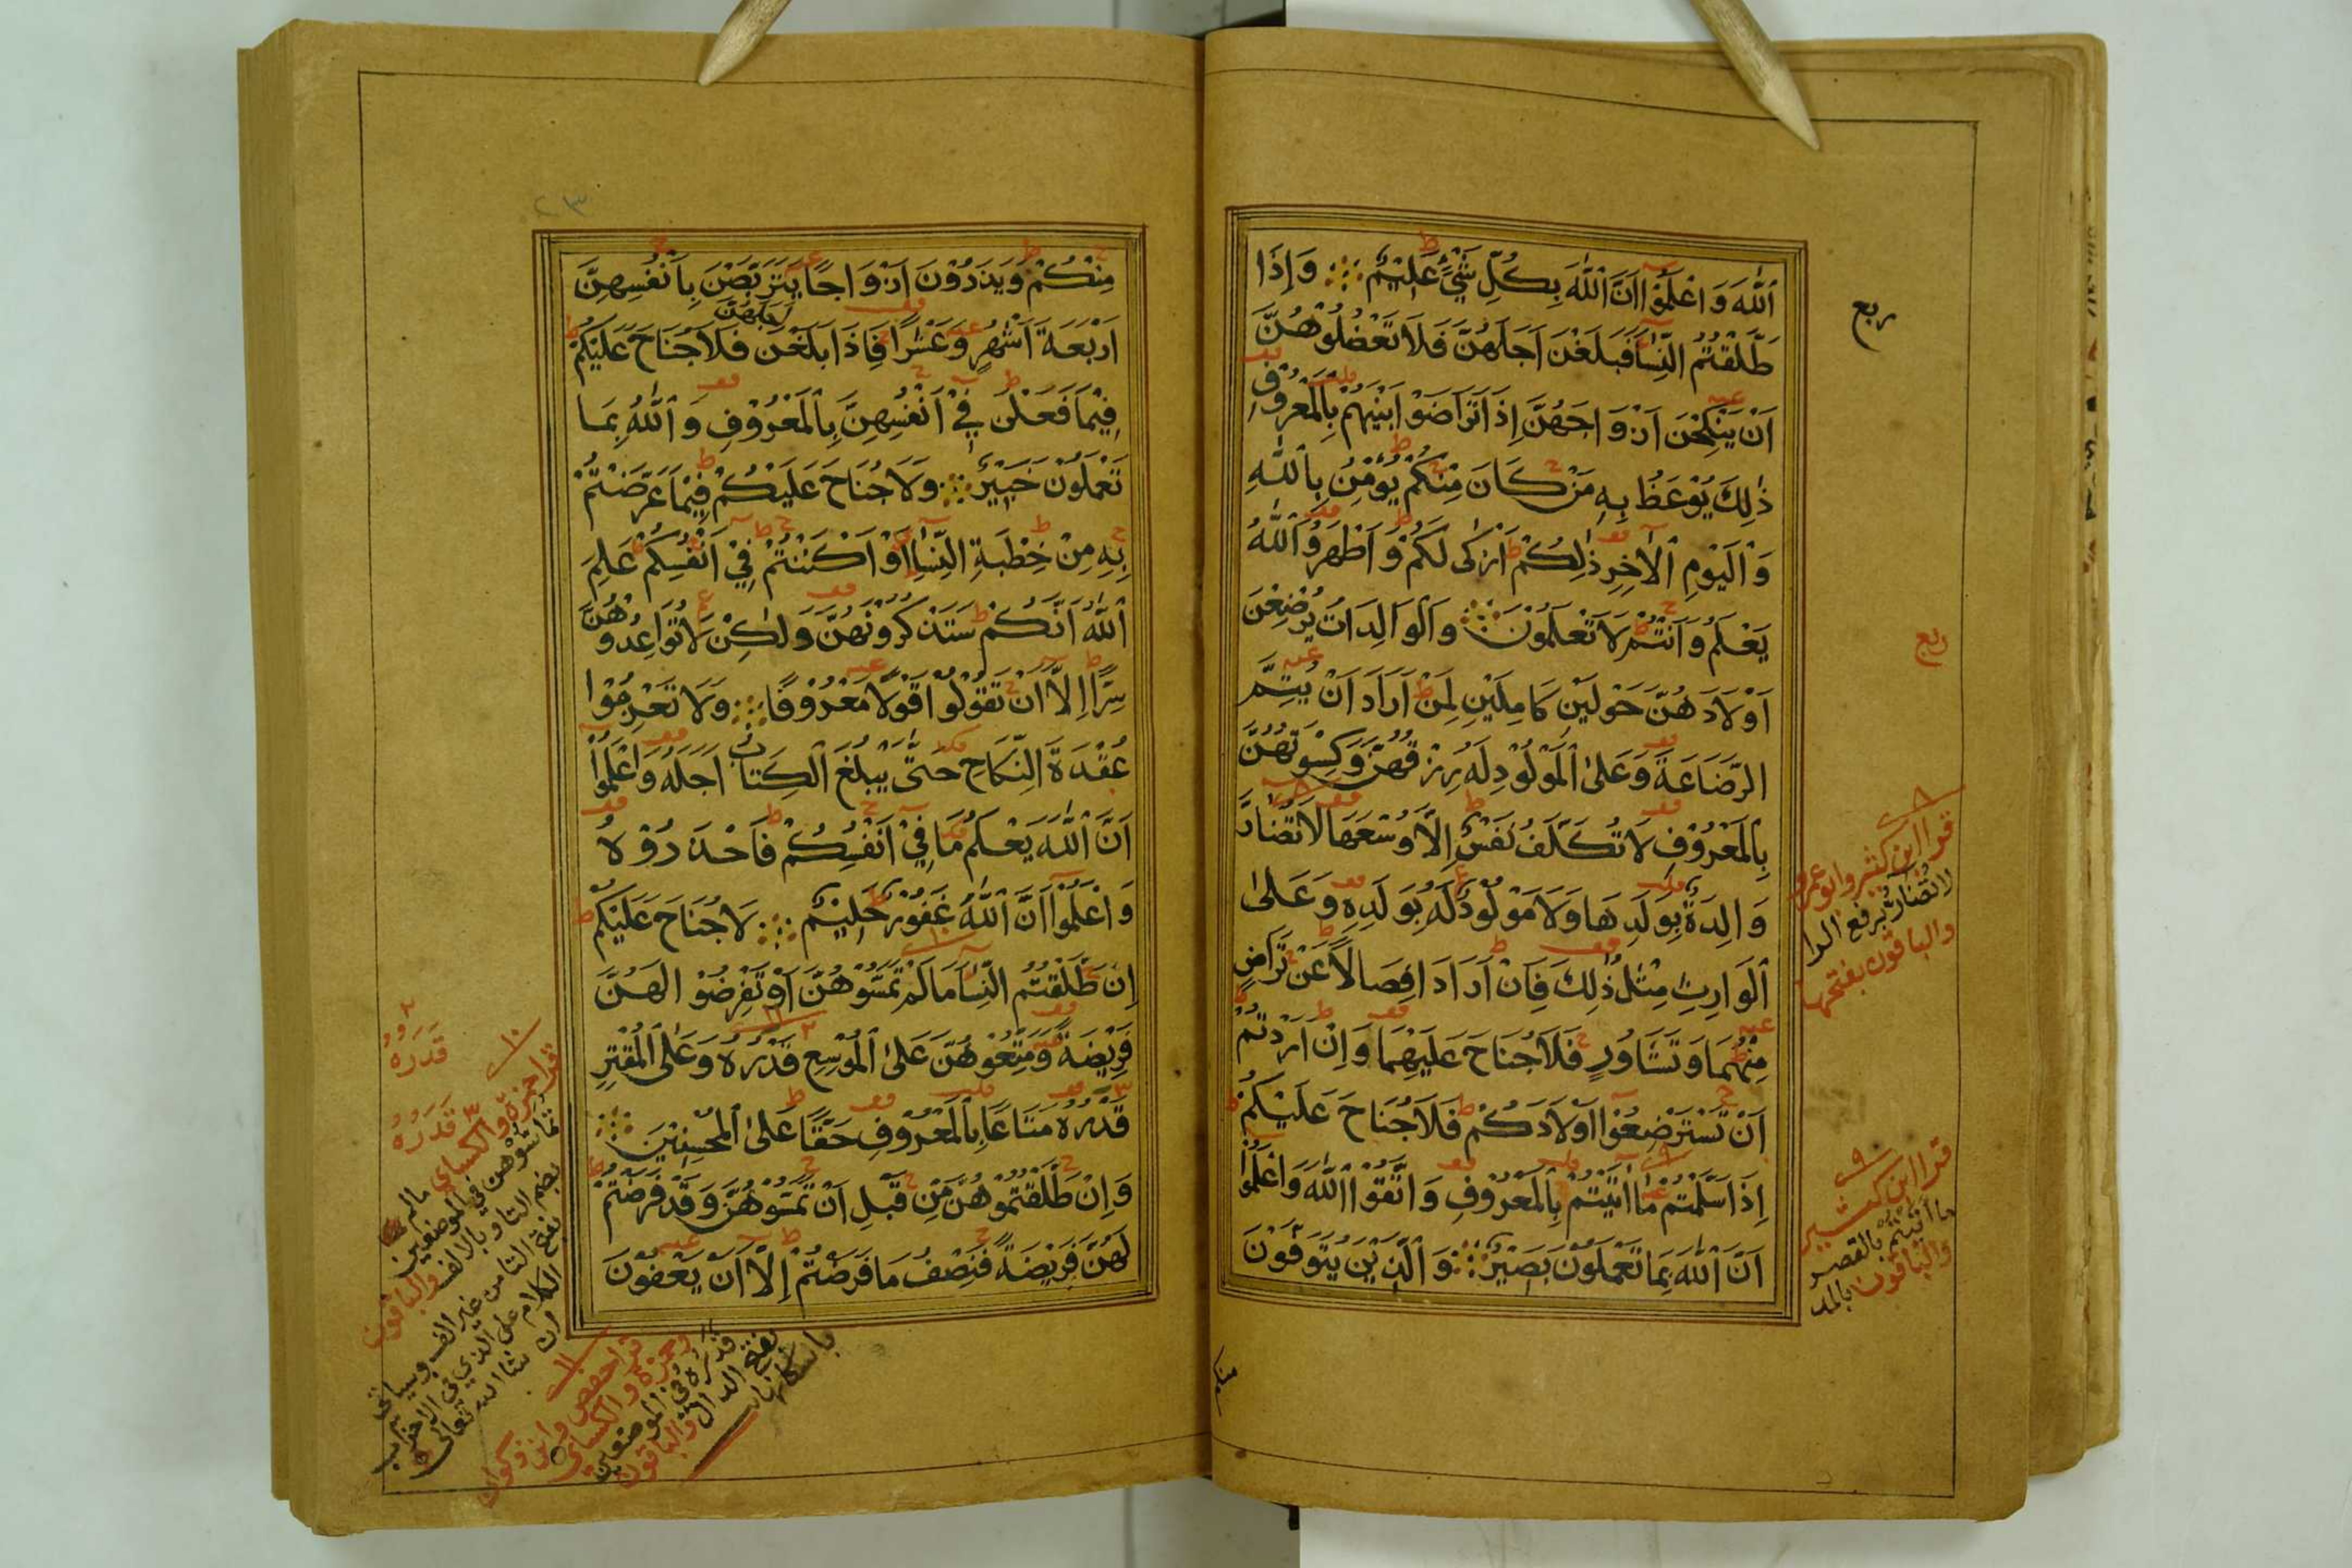 ٱللَّهَ وَاعْلَمُوٓا اَنَّ ٱللَّهَ بِكُلِّ شَيْءٍ عَلِيْمٌ وَإِذَا
طَلَّقْتُمُ النِّسَآءَ فَبَلَغْنَ اَجَلَهُنَّ فَلَا تَعْضُلُوْهُنَّ
اَنْ يَنْكِحْنَ اَزْوَاجَهُنَّ إِذَا تَرَاضَوْا بَيْنَهُمْ بِالْمَعْرُوْفِ
ذٰلِكَ يُوْعَظُ بِهٖ مَنْ كَانَ مِنْكُمْ يُؤْمِنُ بِاللَّهِ
وَالْيَوْمِ الْاٰخِرِ ذٰلِكُمْ اَزْكٰى لَكُمْ وَاَطْهَرُ وَٱللَّهُ
يَعْلَمُ وَاَنْتُمْ لَا تَعْلَمُوْنَ وَالْوَالِدَاتُ يُرْضِعْنَ
اَوْلَادَهُنَّ حَوْلَيْنِ كَامِلَيْنِ لِمَنْ اَرَادَ اَنْ يُتِمَّ
الرَّضَاعَةَ وَعَلَى الْمَوْلُوْدِ لَهُ رِزْقُهُنَّ وَكِسْوَتُهُنَّ
بِالْمَعْرُوْفِ لَا تُكَلَّفُ نَفْسٌ إِلَّا وُسْعَهَا لَا تُضَارَّ
وَالِدَةٌ بِوَلَدِهَا وَلَا مَوْلُوْدٌ لَهُ بِوَلَدِهٖ وَعَلَى
الْوَارِثِ مِثْلُ ذٰلِكَ فَإِنْ اَرَادَا فِصَالًا عَنْ تَرَاضٍ
مِنْهُمَا وَتَشَاوُرٍ فَلَا جُنَاحَ عَلَيْهِمَا وَإِنْ اَرَدْتُمْ
اَنْ تَسْتَرْضِعُوْٓا اَوْلَادَكُمْ فَلَا جُنَاحَ عَلَيْكُمْ
إِذَا سَلَّمْتُمْ مَآ اٰتَيْتُمْ بِالْمَعْرُوْفِ وَاتَّقُوا اللَّهَ وَاعْلَمُوْٓا
اَنَّ ٱللَّهَ بِمَا تَعْمَلُوْنَ بَصِيْرٌ وَالَّذِيْنَ يُتَوَفَّوْنَ
ربع
ربع
٨
قرا ابن كثير وابو عمرو
لا تضارُّ برفع الرا
والباقون بفتحها
٩
قرا ابن كثير
ما اتيتم بالقصر
والباقون بالمد
٢٣
مِنْكُمْ وَيَذَرُوْنَ اَزْوَاجًا يَتَرَبَّصْنَ بِاَنْفُسِهِنَّ
اَرْبَعَةَ اَشْهُرٍ وَعَشْرًا فَإِذَا بَلَغْنَ اَجَلَهُنَّ فَلَا جُنَاحَ عَلَيْكُمْ
فِيْمَا فَعَلْنَ فِيْٓ اَنْفُسِهِنَّ بِالْمَعْرُوْفِ وَٱللَّهُ بِمَا
تَعْمَلُوْنَ خَبِيْرٌ وَلَا جُنَاحَ عَلَيْكُمْ فِيْمَا عَرَّضْتُمْ
بِهٖ مِنْ خِطْبَةِ النِّسَآءِ اَوْ اَكْنَنْتُمْ فِيْٓ اَنْفُسِكُمْ عَلِمَ
ٱللَّهُ اَنَّكُمْ سَتَذْكُرُوْنَهُنَّ وَلٰكِنْ لَا تُوَاعِدُوْهُنَّ
سِرًّا إِلَّآ اَنْ تَقُوْلُوْا قَوْلًا مَعْرُوْفًا وَلَا تَعْزِمُوْا
عُقْدَةَ النِّكَاحِ حَتّٰى يَبْلُغَ الْكِتَابُ اَجَلَهُ وَاعْلَمُوْٓا
اَنَّ ٱللَّهَ يَعْلَمُ مَا فِيْٓ اَنْفُسِكُمْ فَاحْذَرُوْهُ
وَاعْلَمُوْٓا اَنَّ ٱللَّهَ غَفُوْرٌ حَلِيْمٌ لَا جُنَاحَ عَلَيْكُمْ
إِنْ طَلَّقْتُمُ النِّسَآءَ مَا لَمْ تَمَسُّوْهُنَّ اَوْ تَفْرِضُوْا لَهُنَّ
فَرِيْضَةً وَمَتِّعُوْهُنَّ عَلَى الْمُوْسِعِ قَدَرُهُ وَعَلَى الْمُقْتِرِ
قَدَرُهُ مَتَاعًا بِالْمَعْرُوْفِ حَقًّا عَلَى الْمُحْسِنِيْنَ
وَإِنْ طَلَّقْتُمُوْهُنَّ مِنْ قَبْلِ اَنْ تَمَسُّوْهُنَّ وَقَدْ فَرَضْتُمْ
لَهُنَّ فَرِيْضَةً فَنِصْفُ مَا فَرَضْتُمْ إِلَّآ اَنْ يَعْفُوْنَ
٢
قَدَرُهُ
٣
قَدَرُهُ
١٠
قرا حمزة والكساي مالم
تماسوهن في الموضعين
بضم التا وبالالف والباقون
بفتح التا من غير الف وسياتي
الكلام على الذي في الاحزاب
ان شا الله تعالى
١١
قرا حفص وابن ذكوان
وحمزة والكساي
قدره في الموضعين
بفتح الدال والباقون
باسكانها